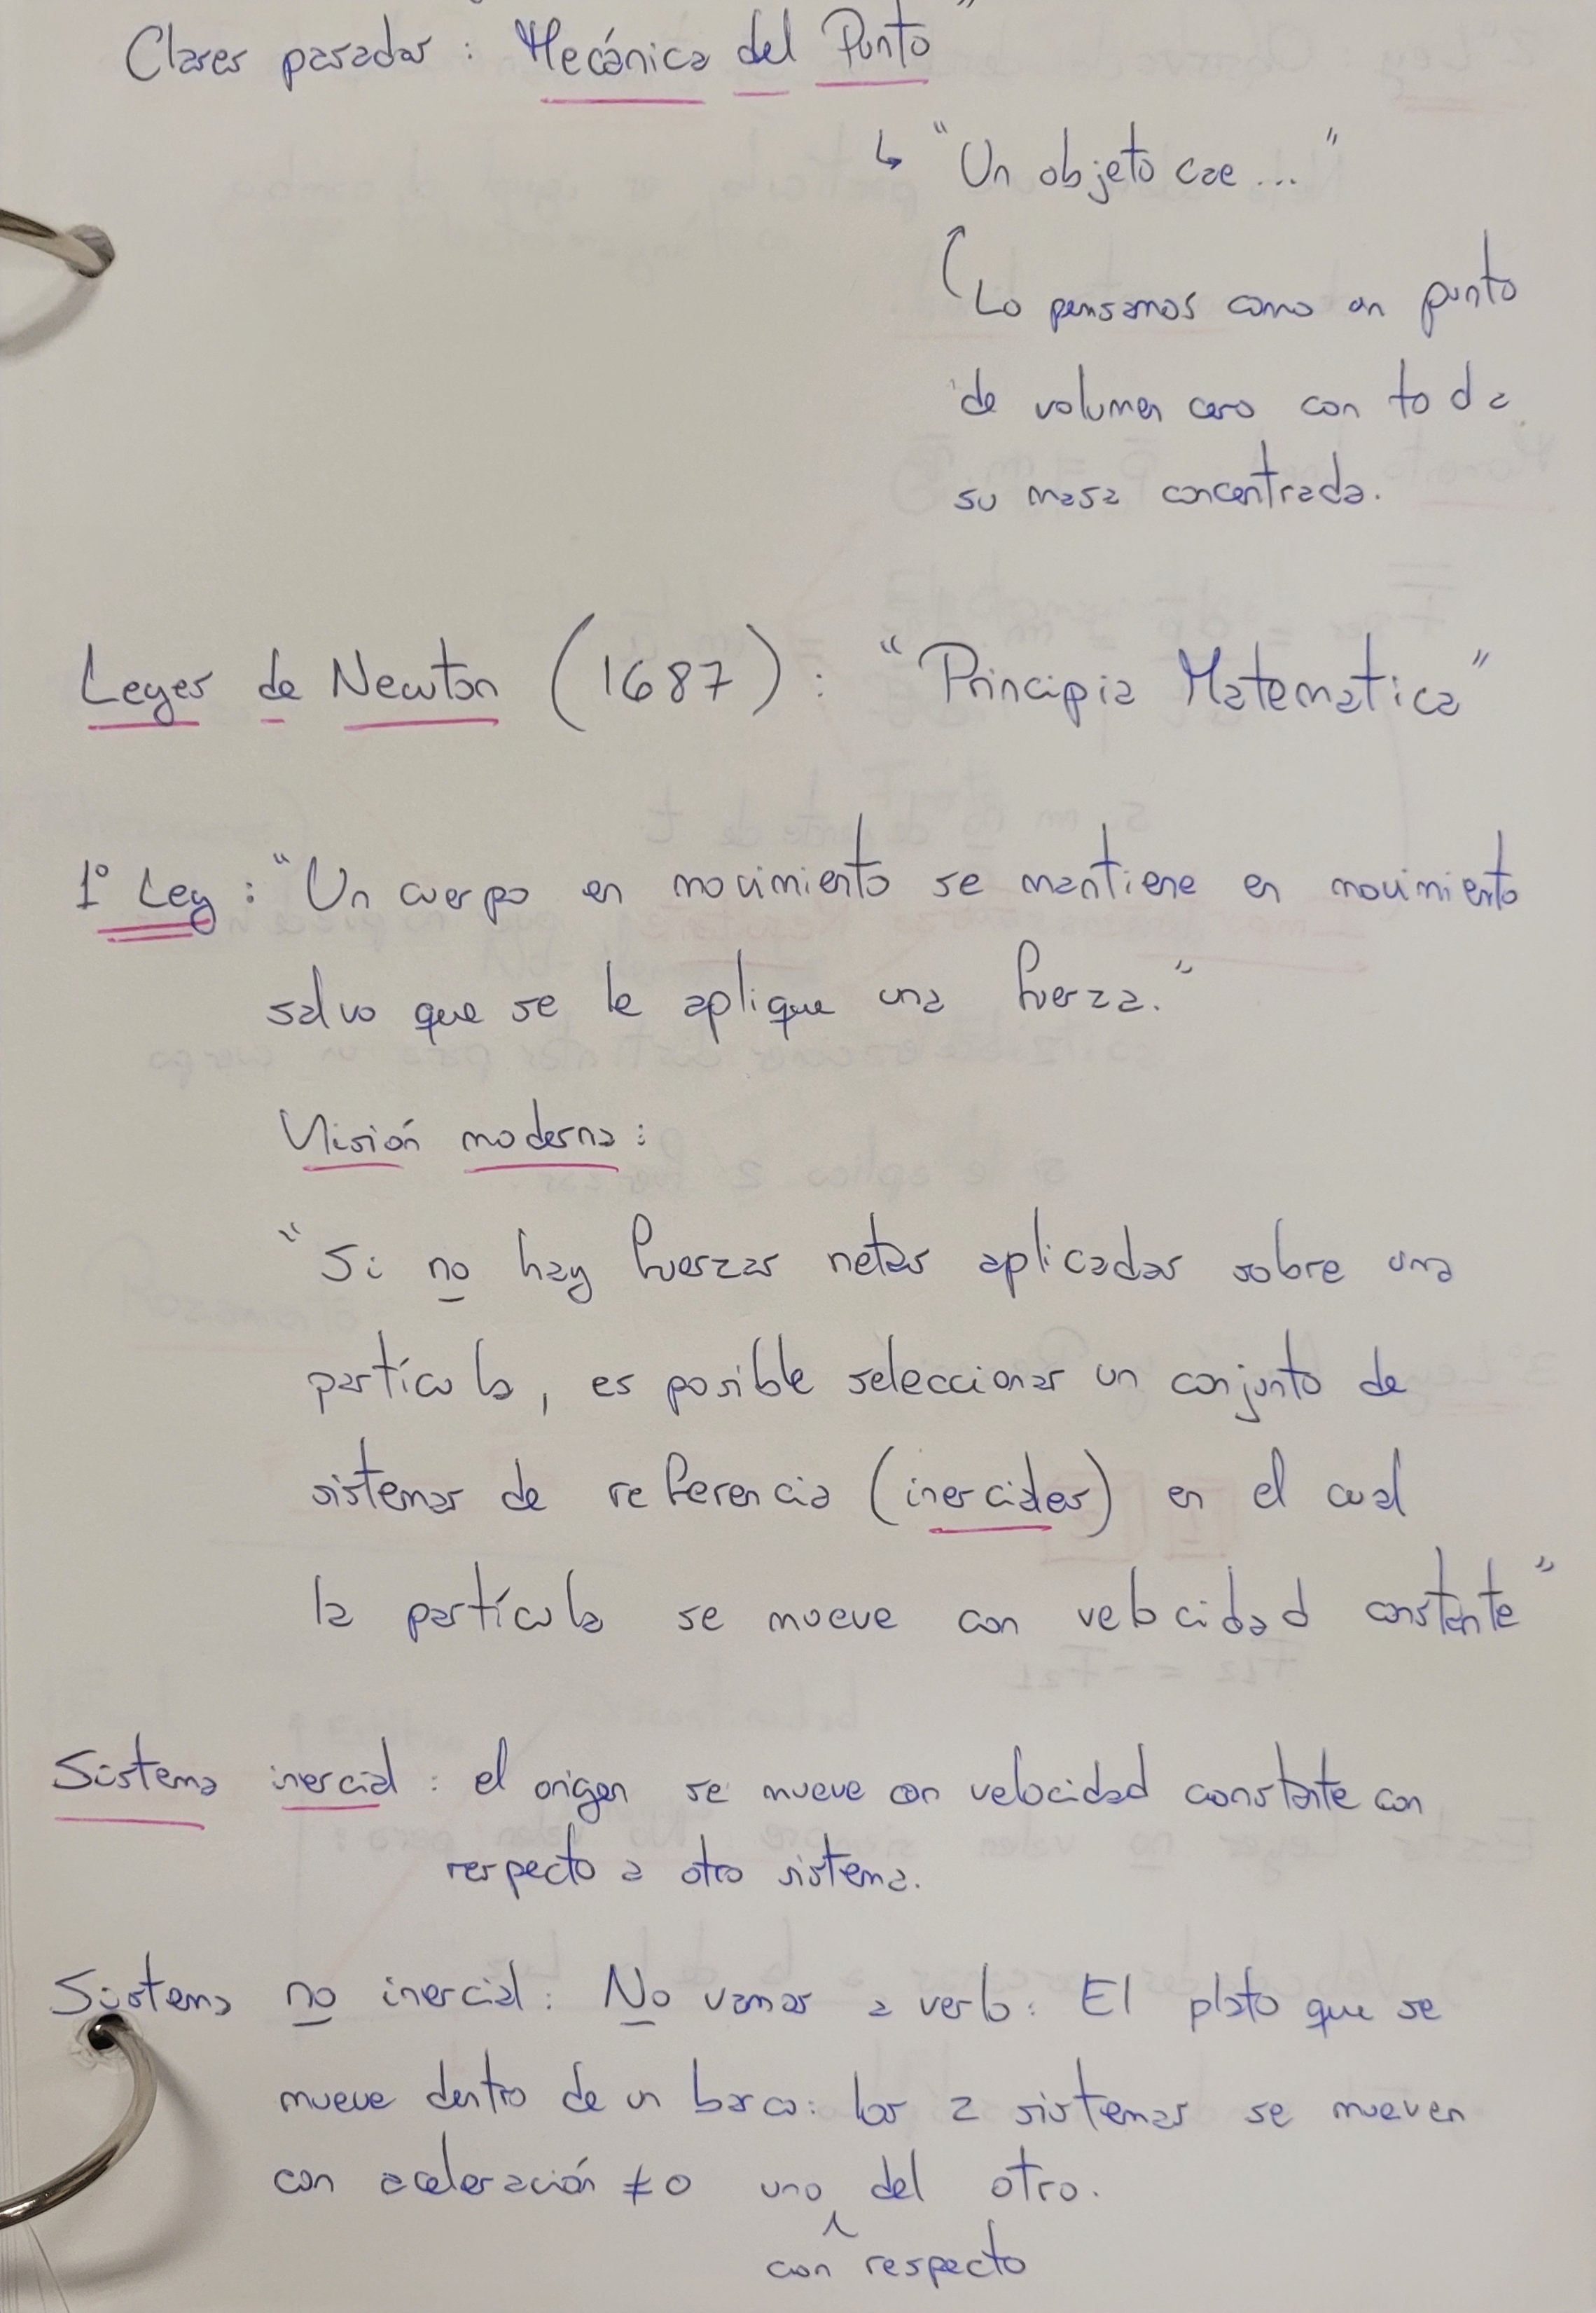 Clases pasadas: "Mecánica del Punto"
↳ "Un objeto cae..."
Lo pensamos como un punto
de volumen cero con toda
su masa concentrada.
Leyes de Newton (1687): "Principia Matematica"
1° Ley: "Un cuerpo en movimiento se mantiene en movimiento
salvo que se le aplique una fuerza."
Visión moderna:
"Si no hay fuerzas netas aplicadas sobre una
partícula, es posible seleccionar un conjunto de
sistemas de referencia (inerciales) en el cual
la partícula se mueve con velocidad constante"
Sistema inercial: el origen se mueve con velocidad constante con
respecto a otro sistema.
Sistema no inercial: No vamos a verlo: El plato que se
mueve dentro de un barco: los 2 sistemas se mueven
con aceleración ≠ 0 uno del otro.
con respecto